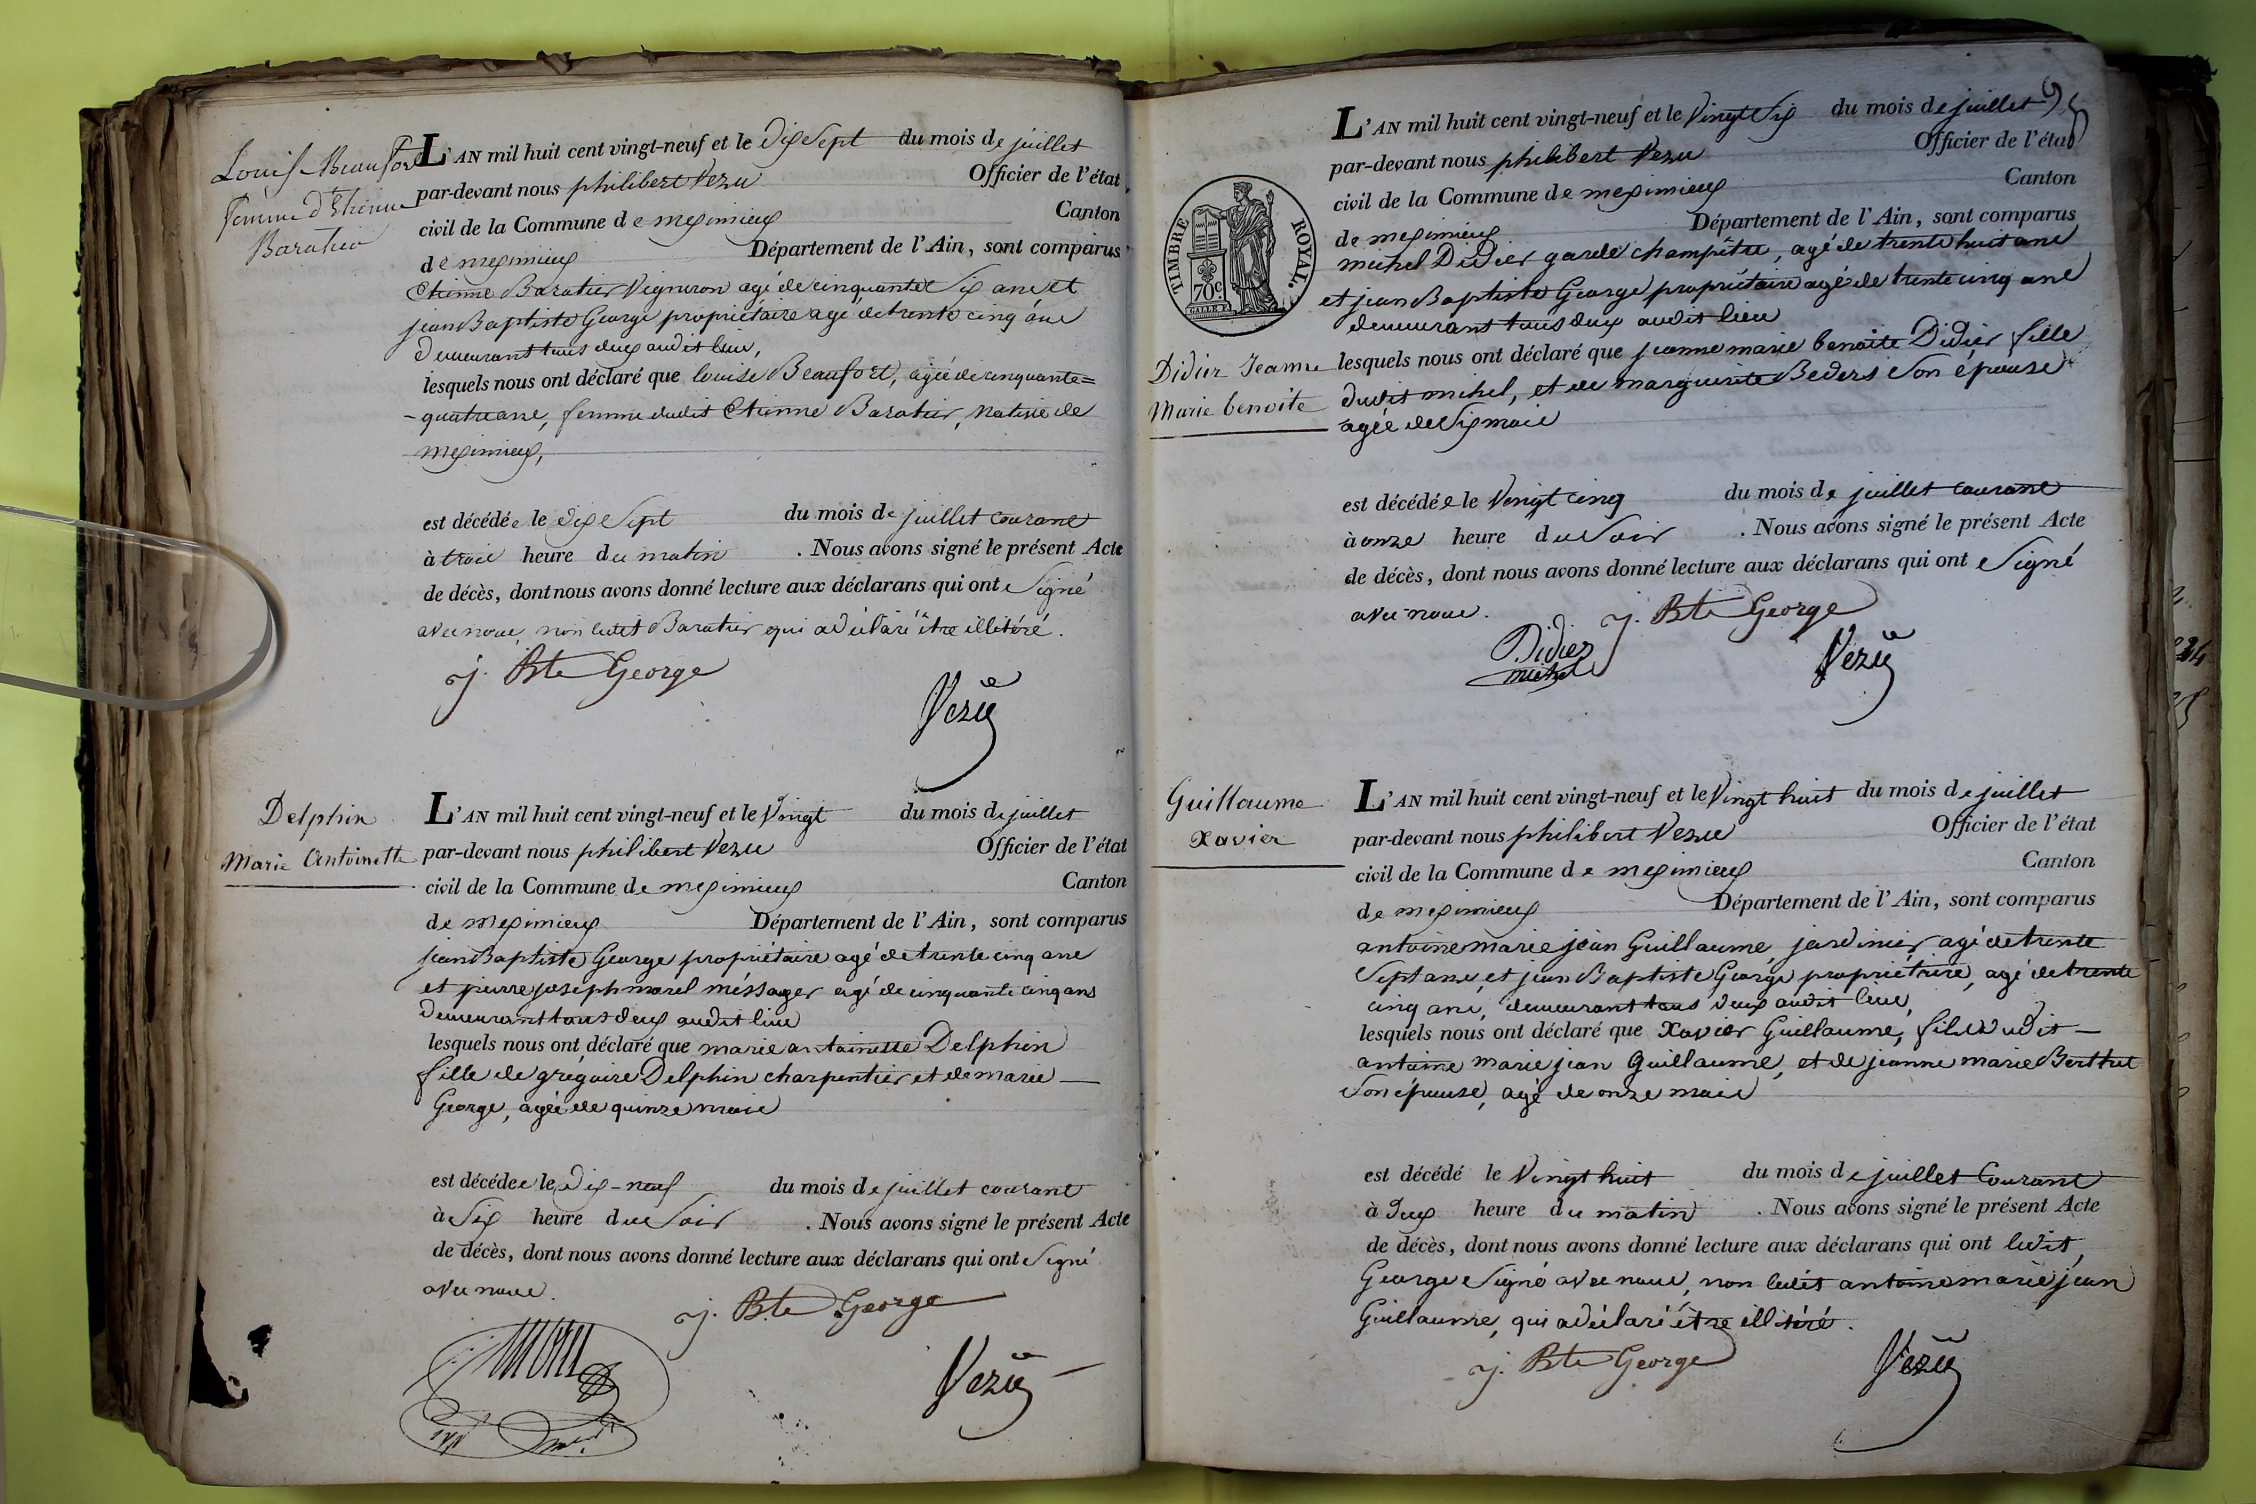 Louise Beaufort
femme d'Etienne
Baratier
L'AN mil huit cent vingt-neuf et le dix Sept du mois de juillet
par-devant nous philibert Vezu Officier de l'état
civil de la Commune de meximieux Canton
de meximieux Département de l'Ain, sont comparus
Etienne Baratier Vigneron agé de cinquante Six ans et
jean Baptiste George propriétaire agé de trente cinq ans
demeurant tous deux audit lieu,
lesquels nous ont déclaré que louise Beaufort, agée de cinquante=
-quatre ans, femme dudit Etienne Baratier, native de
meximieux,
est décédée le dix Sept du mois de juillet courant
à trois heure du matin . Nous avons signé le présent Acte
de décès, dont nous avons donné lecture aux déclarans qui ont Signé
avec nous, non ledit Baratier qui a déclaré être illitéré.
j. Bte George
Vezu
Delphin
Marie Antoinette
L'AN mil huit cent vingt-neuf et le Vingt du mois de juillet
par-devant nous philibert Vezu Officier de l'état
civil de la Commune de meximieux Canton
de meximieux Département de l'Ain, sont comparus
jean Baptiste George propriétaire agé de trente cinq ans
et pierre joseph morel méssager agé de cinquante cinq ans
demeurant tous deux audit lieu
lesquels nous ont déclaré que marie antoinette Delphin
fille de grégoire Delphin charpentier et de marie
George, agée de quinze mois
est décédée le dix-neuf du mois de juillet courant
à Six heure du Soir . Nous avons signé le présent Acte
de décès, dont nous avons donné lecture aux déclarans qui ont Signé
avec nous.
j. Bte George
Vezu
L'AN mil huit cent vingt-neuf et le Vingt Six du mois de juillet
par-devant nous philibert Vezu Officier de l'état
civil de la Commune de meximieux Canton
de meximieux Département de l'Ain, sont comparus
TIMBRE ROYAL.
70c.
michel Didier garde champêtre, agé de trente huit ans
et jean Baptiste George propriétaire agé de trente cinq ans
demeurant tous deux audit lieu
Didier Jeanne
Marie benoite
lesquels nous ont déclaré que jeanne marie benoite Didier fille
dudit michel, et de marguerite Beders Son épouse
agée de Six mois
est décédée le Vingt cinq du mois de juillet courant
à onze heure du Soir . Nous avons signé le présent Acte
de décès, dont nous avons donné lecture aux déclarans qui ont Signé
avec nous.
j. Bte George
Didier
michel
Vezu
Guillaume
Xavier
L'AN mil huit cent vingt-neuf et le Vingt huit du mois de juillet
par-devant nous philibert Vezu Officier de l'état
civil de la Commune de meximieux Canton
de meximieux Département de l'Ain, sont comparus
antoine marie jean Guillaume, jardinier agé de trente
Sept ans, et jean Baptiste George propriétaire, agé de trente
cinq ans, demeurant tous deux audit lieu,
lesquels nous ont déclaré que Xavier Guillaume, fils dudit
antoine marie jean Guillaume, et de jeanne marie Berthet
Son épouse, agé de onze mois
est décédé le Vingt huit du mois de juillet Courant
à deux heure du matin . Nous avons signé le présent Acte
de décès, dont nous avons donné lecture aux déclarans qui ont ledit
George Signé avec nous, non ledit antoine marie jean
Guillaume, qui a déclaré être illitéré.
j. Bte George
Vezu